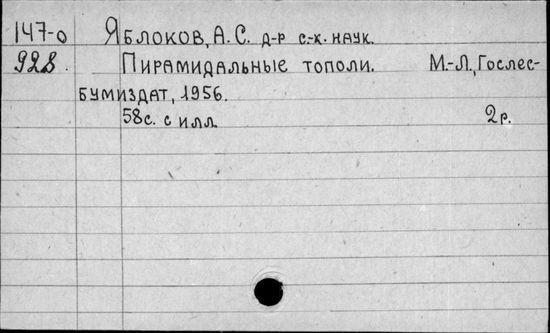 147-о Яблоков, А.С. д-р с.-х. наук.
928 Пирамидальные тополи. М.-Л., Гослес-
бумиздат, 1956.
58с. с илл. 2р.